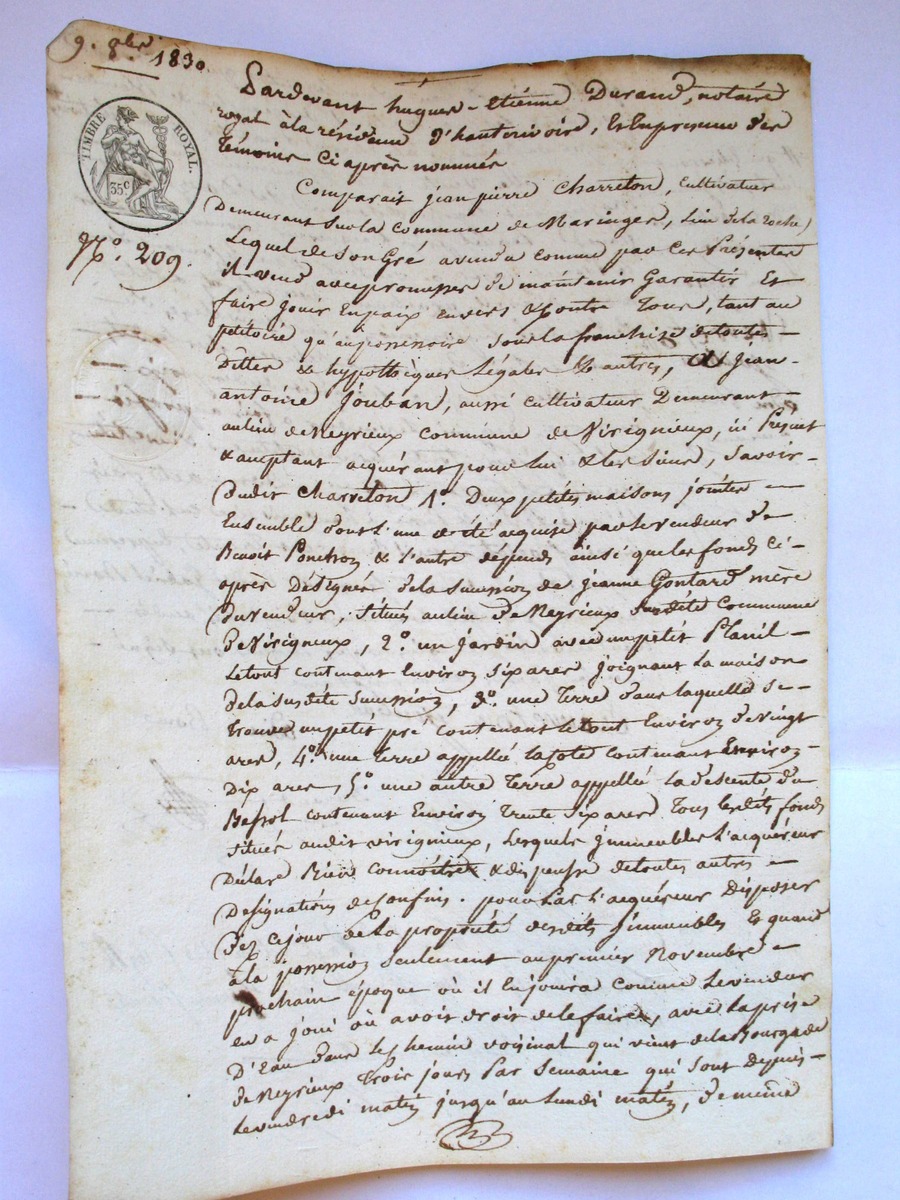 9. 8bre 1830
TIMBRE ROYAL.
35c
No. 209.
Pardevant hugues-Etienne Durand, notaire
royal à la résidence d'hauterivoire, Et En presence des
témoins Ci après nommés
Comparait jean pierre Charreton, Cultivateur
Demeurant Sur la Commune de Maringes, Lieu de la roche,
Lequel de Son Gré a vendu Comme par Ces Présentes
il vend avec promesses de maintenir Garantir Et
faire jouir En paix envers & Contre Tous, tant au
petitoire qu'au possessoire Sous la franchise de toutes
Dettes & hypothèques Légales & autres, à jean-
antoine Jouban, aussi Cultivateur Demeurant
au lieu de Neyrieux Commune de Virigneux, ici Présent
& acceptant acquérant pour lui & les Siens, Savoir
dudit Charreton 1o. Deux petites maisons jointes
Ensemble dont l'une a été acquise par le vendeur de
Benoit Ponchon & l'autre dépend ainsi que les fonds Ci-
après Désignés de la Succession de jeanne Gontard mère
du vendeur, Situés au lieu de Neyrieux Sus dite Commune
de Virigneux, 2o. un jardin avec un petit
Le tout contenant Environ Six ares joignant La maison
de la Susdite Succession, 3o. une Terre dans laquelle Se
trouve un petit pré Contenant le tout Environ de Vingt
ares, 4o. une terre appellée la Côte Contenant Environ
Dix ares, 5o. une autre Terre appellée La descente du
Bessol Contenant Environ Trente Six ares Tous lesdits fonds
Situés audit virigneux, Lesquels immeubles L'acquéreur
Déclare Bien Connoitre & dispense de toutes autres
Designations de Confins. pour Par L'acquéreur Disposer
Dès Ce jour de la propriété desdits immeubles Et quand
à la possession Seulement au premier Novembre
prochain époque où il En jouira Comme Le vendeur
en a joui où avoit droit de le faire, avec la prise
D'Eau dans le Chemin voisinal qui vient de la
de Neyrieux Trois jours Par Semaine qui Sont Depuis
Le vendredi matin jusqu'au Lundi matin, de même